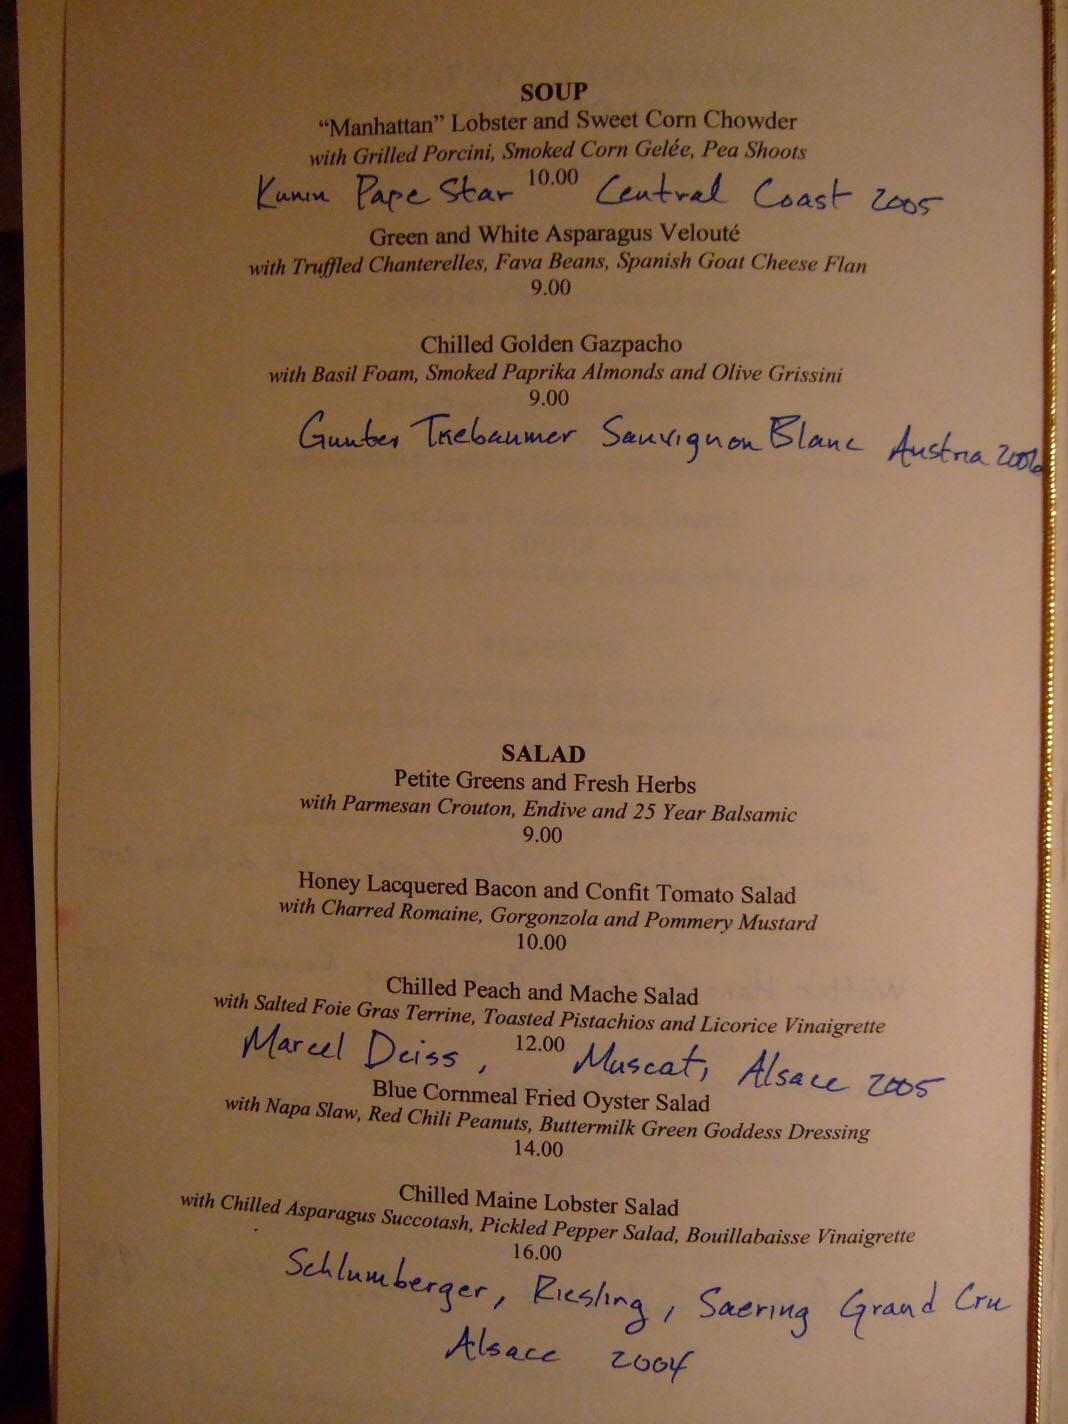 SOUP
“Manhattan” Lobster and Sweet Corn Chowder
with Grilled Porcini, Smoked Corn Gelée, Pea Shoots
10.00
Kunin Pape Star Central Coast 2005
Green and White Asparagus Velouté
with Truffled Chanterelles, Fava Beans, Spanish Goat Cheese Flan
9.00
Chilled Golden Gazpacho
with Basil Foam, Smoked Paprika Almonds and Olive Grissini
9.00
Gunter Triebaumer Sauvignon Blanc Austria 2006
SALAD
Petite Greens and Fresh Herbs
with Parmesan Crouton, Endive and 25 Year Balsamic
9.00
Honey Lacquered Bacon and Confit Tomato Salad
with Charred Romaine, Gorgonzola and Pommery Mustard
10.00
Chilled Peach and Mache Salad
with Salted Foie Gras Terrine, Toasted Pistachios and Licorice Vinaigrette
12.00
Marcel Deiss, Muscat, Alsace 2005
Blue Cornmeal Fried Oyster Salad
with Napa Slaw, Red Chili Peanuts, Buttermilk Green Goddess Dressing
14.00
Chilled Maine Lobster Salad
with Chilled Asparagus Succotash, Pickled Pepper Salad, Bouillabaisse Vinaigrette
16.00
Schlumberger, Riesling, Saering Grand Cru
Alsace 2004